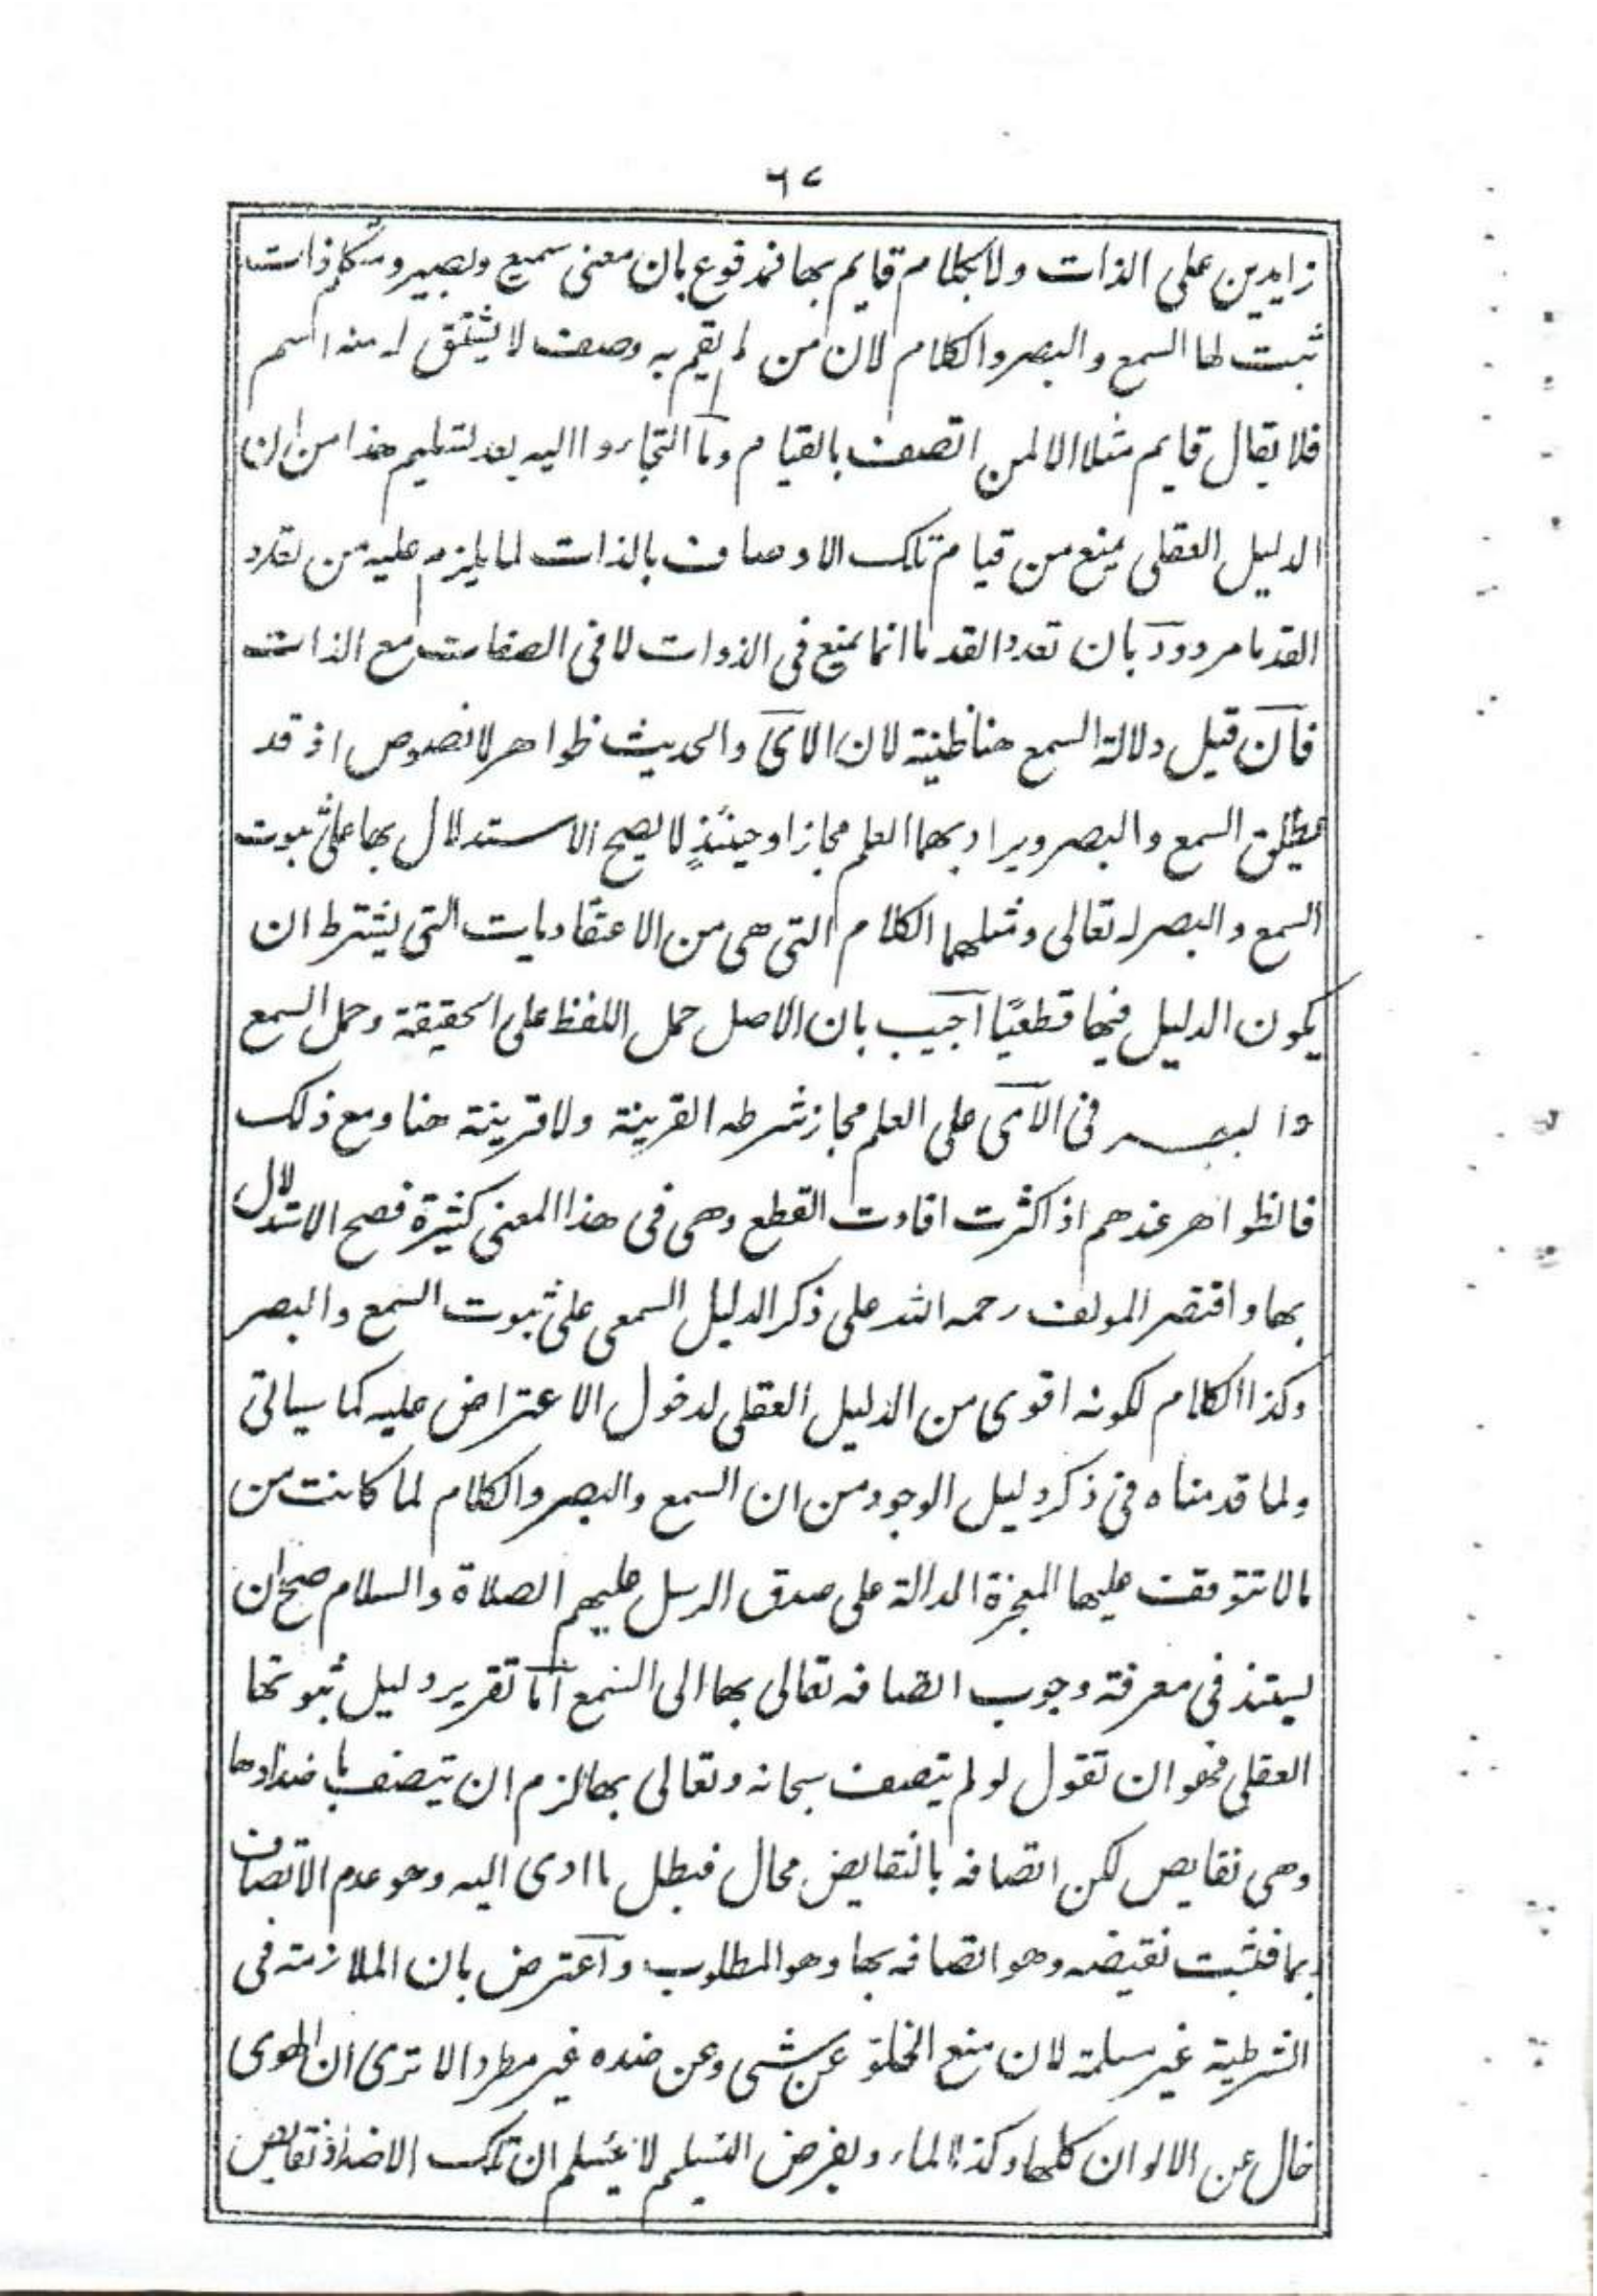 ٦٧
زايدين على الذات ولا بكلام قايم بها فمدفوع بان معنى سميع وبصير ومتكلم ذات
ثبت لها السمع والبصر والكلام لان من لم يقم به وصف لا يشتق له منه اسم
فلا يقال قايم مثلا الا لمن اتصف بالقيام وما التجاءوا اليه بعد تسليم هذا من ان
الدليل العقلى يمنع من قيام تلك الاوصاف بالذات لما يلزم عليه من تعدد
القدما مردود بان تعدد القدما انما يمنع فى الذوات لا فى الصفات مع الذات
فان قيل دلالة السمع هنا ظنية لان الاى والحديث ظواهر لا نصوص اذ قد
يطلق السمع والبصر ويراد بهما العلم مجازا وحينئذٍ لا يصح الاستدلال بها على ثبوت
السمع والبصر له تعالى ومثلهما الكلام التى هى من الاعتقاديات التى يشترط ان
يكون الدليل فيها قطعيًا اجيب بان الاصل حمل اللفظ على الحقيقة وحمل السمع
والبصر فى الآى على العلم مجاز شرطه القرينة ولا قرينة هنا ومع ذلك
فالظواهر عندهم اذا كثرت افادت القطع وهى فى هذا المعنى كثيرة فصح الاستدلال
بها واقتصر المولف رحمه الله على ذكر الدليل السمعى على ثبوت السمع والبصر
وكذا الكلام لكونه اقوى من الدليل العقلى لدخول الاعتراض عليه كما سياتى
ولما قدمناه فى ذكر دليل الوجود من ان السمع والبصر والكلام لما كانت من
مالا تتوقف عليها المعجزة الدالة على صدق الرسل عليهم الصلاة والسلام صح ان
يستند فى معرفة وجوب اتصافه تعالى بها الى السمع اما تقرير دليل ثبوتها
العقلى فهو ان تقول لو لم يتصف سبحانه وتعالى بها لزم ان يتصف باضدادها
وهى نقايص لكن اتصافه بالنقايض محال فبطل ما ادى اليه وهو عدم الاتصاف
بها فثبت نقيضه وهو اتصافه بها وهو المطلوب واعترض بان الملازمة فى
الشرطية غير مسلمة لان منع الخلو عن شى وعن ضده غير مطرد الا ترى ان الهوى
خال عن الالوان كلها وكذا الماء وبفرض التسليم لا نسلم ان تلك الاضداد نقايص